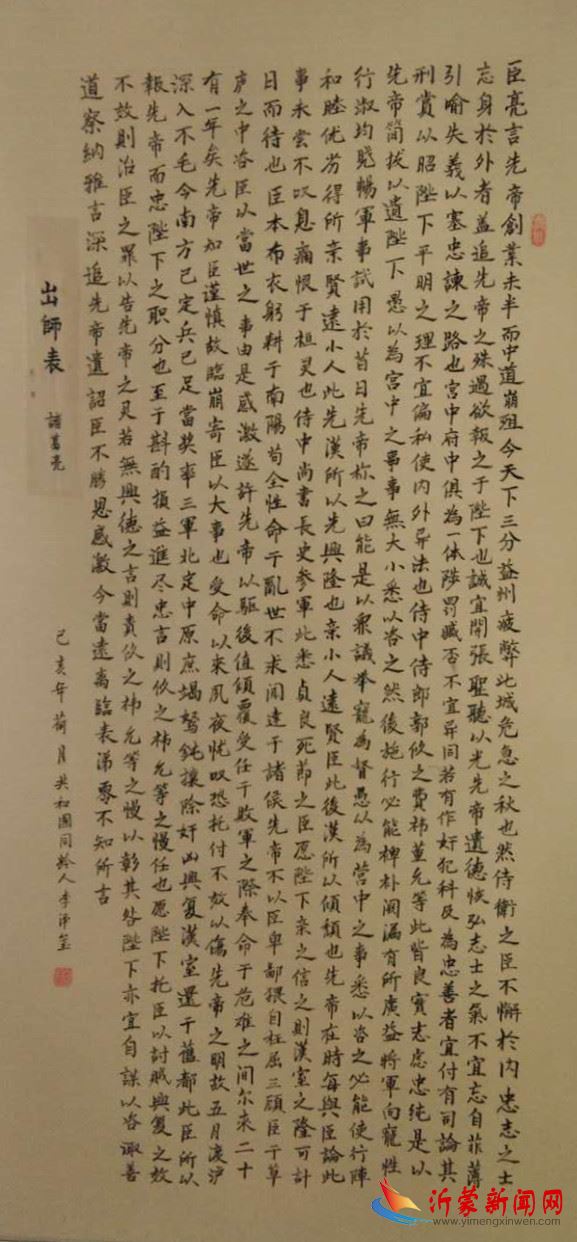 臣亮言先帝創業未半而中道崩殂今天下三分益州疲弊此城危急之秋也然侍衛之臣不懈於內忠志之士
忘身於外者蓋追先帝之殊遇欲報之于陛下也誠宜開張聖聽以光先帝遺德恢弘志士之氣不宜忘自菲薄
引喻失義以塞忠諫之路也宮中府中俱為一体陟罰臧否不宜异同若有作奸犯科及為忠善者宜付有司論其
刑賞以昭陛下平明之理不宜偏私使內外异法也侍中侍郎郭攸之費祎董允等此皆良實志慮忠纯是以
先帝简拔以遺陛下愚以為宮中之事事無大小悉以咨之然後施行必能裨朴闕漏有所廣益將軍向寵性
行淑均曉暢軍事試用於昔日先帝称之曰能是以衆議举寵為督愚以為营中之事悉以咨之必能使行陣
和睦优劣得所亲賢遠小人此先漢所以先興隆也亲小人遠賢臣此後漢所以傾頹也先帝在時每與臣論此
事未尝不叹息痛恨于桓灵也侍中尚書長史参軍此悉貞良死節之臣愿陛下亲之信之則漢室之隆可計
日而待也臣本布衣躬耕于南陽苟全性命于亂世不求闻達于諸侯先帝不以臣卑鄙猥自枉屈三顾臣于草
庐之中咨臣以當世之事由是感激遂許先帝以驱後值傾覆受任于敗軍之際奉命于危难之间尔来二十
有一年矣先帝知臣謹慎故臨崩寄臣以大事也受命以来夙夜忧叹恐托付不效以傷先帝之明故五月渡泸
深入不毛今南方已定兵已足當奖率三軍北定中原庶竭駑鈍攘除奸凶興复漢室還于舊都此臣所以
報先帝而忠陛下之职分也至于斟酌損益進尽忠言則攸之祎允等之慢任也愿陛下托臣以討賊興复之效
不效則治臣之罪以告先帝之灵若無興德之言則責攸之祎允等之慢以彰其咎陛下亦宜自謀以咨諏善
道察纳雅言深追先帝遺詔臣不勝恩感激今當遠离臨表涕零不知所言
出師表
諸葛亮
己亥年荷月共和國同龄人李沛
沂蒙新闻网
www.yimengxinwen.com